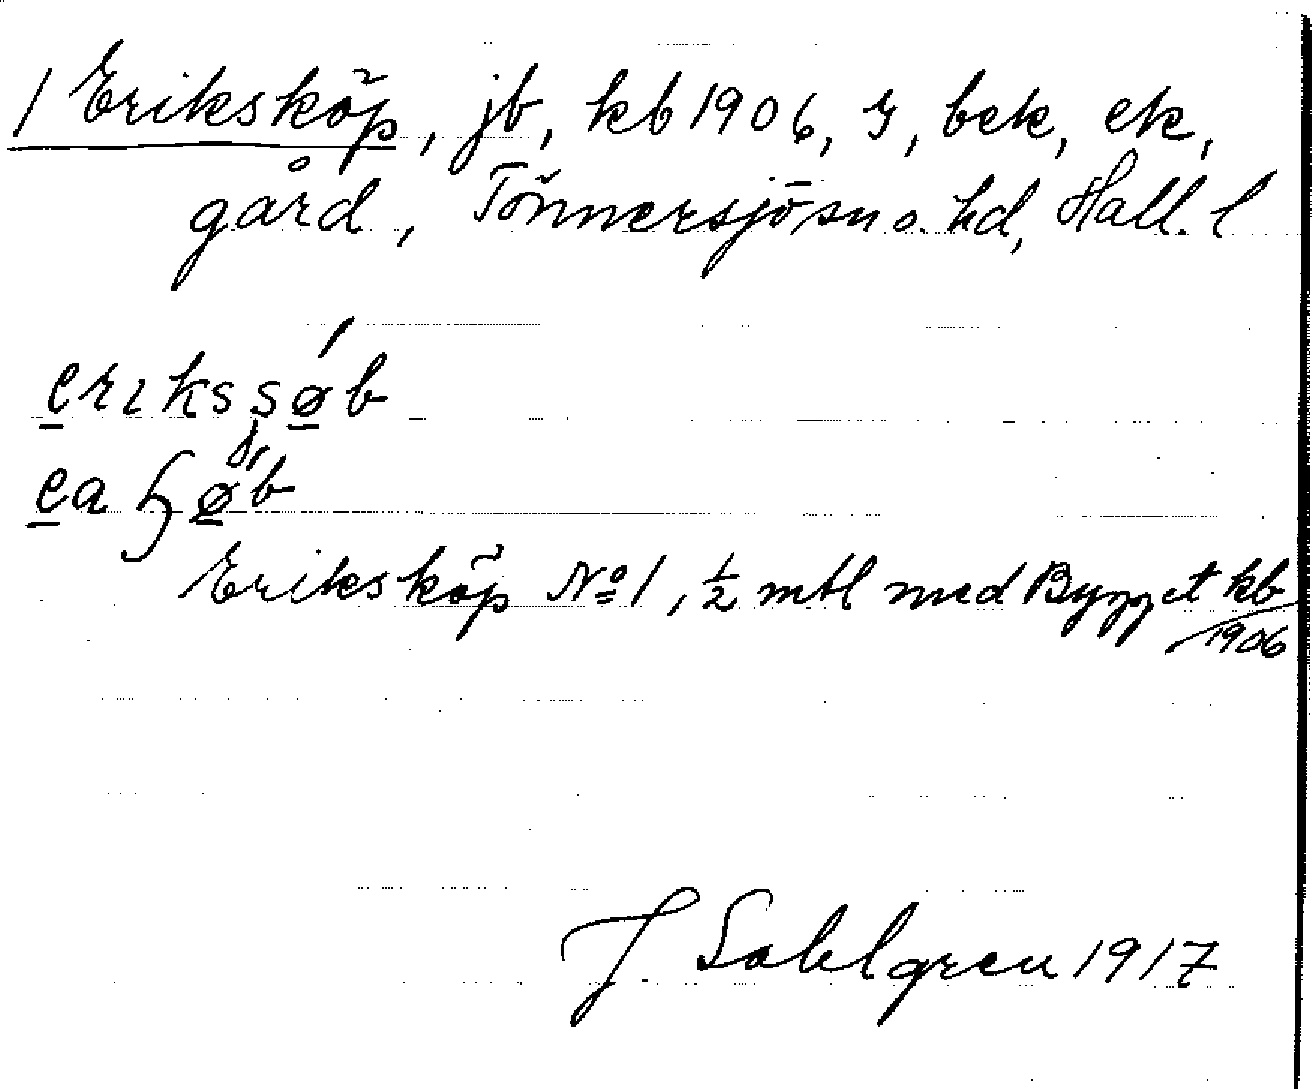 1 Eriksköp, jb, kb 1906, G, bek, ek,
gård, Tönnersjösn o. hd, Hall. l
erikssøb
ea
Eriksköp No 1, 1/2 mtl med Bygget kb
1906
J Sahlgren 1917